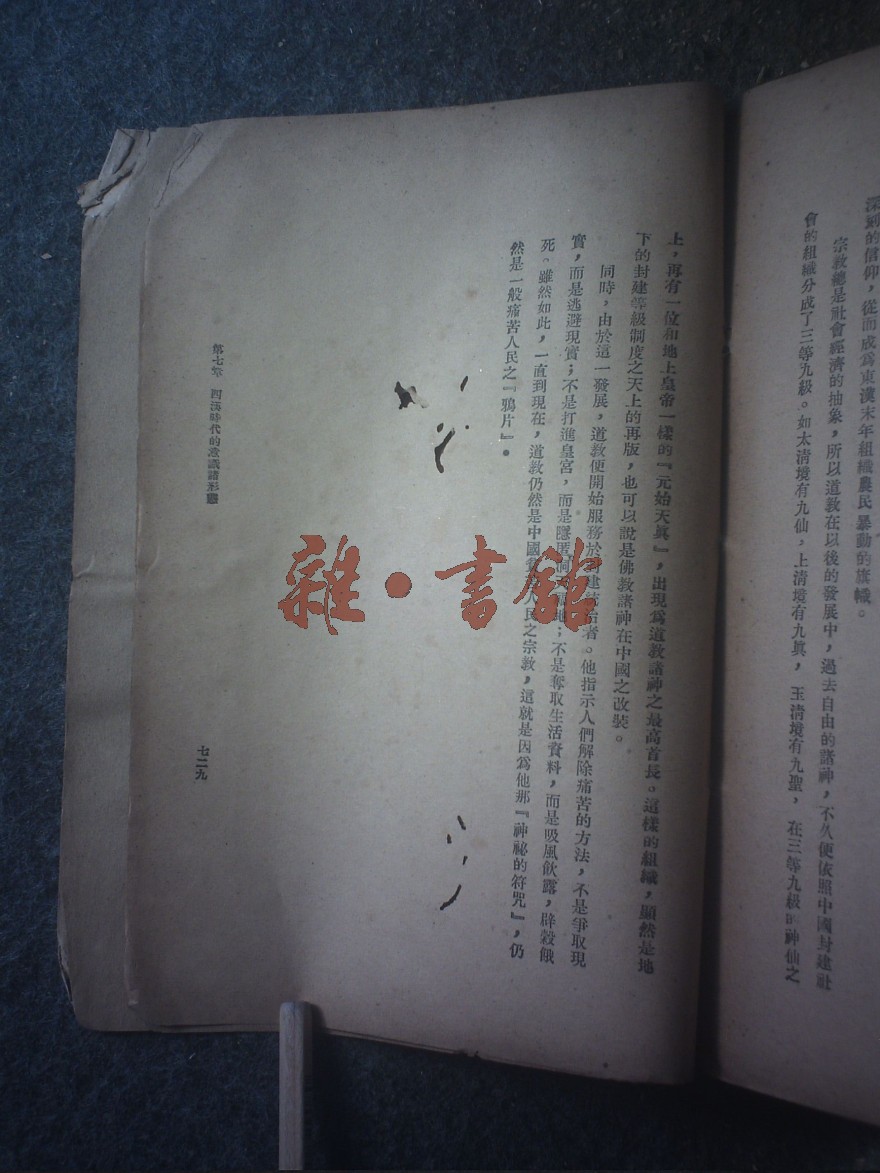 深刻的信仰，從而成爲東漢末年組織農民暴動的旗幟。
宗教總是社會經濟的抽象，所以道教在以後的發展中，過去自由的諸神，不久便依照中國封建社
會的組織分成了三等九級。如太清境有九仙，上清境有九眞，玉清境有九聖，在三等九級的神仙之
上，再有一位和地上皇帝一樣的『元始天眞』，出現爲道教諸神之最高首長。這樣的組織，顯然是地
下的封建等級制度之天上的再版，也可以說是佛教諸神在中國之改裝。
同時，由於這一發展，道教便開始服務於封建統治者。他指示人們解除痛苦的方法，不是爭取現
實，而是逃避現實；不是打進皇宮，而是隱匿洞天福地；不是奪取生活資料，而是吸風飲露，辟穀餓
死。雖然如此，一直到現在，道教仍然是中國貧苦人民之宗教，這就是因爲他那『神祕的符咒』，仍
然是一般痛苦人民之『鴉片』。
第七章 西漢時代的意識諸形態
七二九
雜·書館